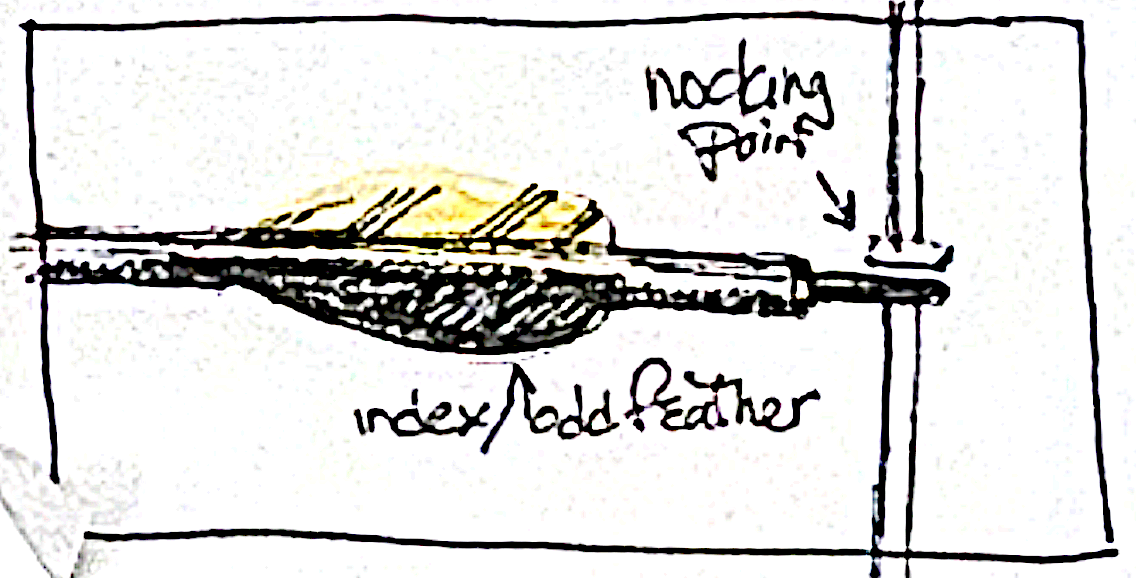 nocking
Point
index/odd feather